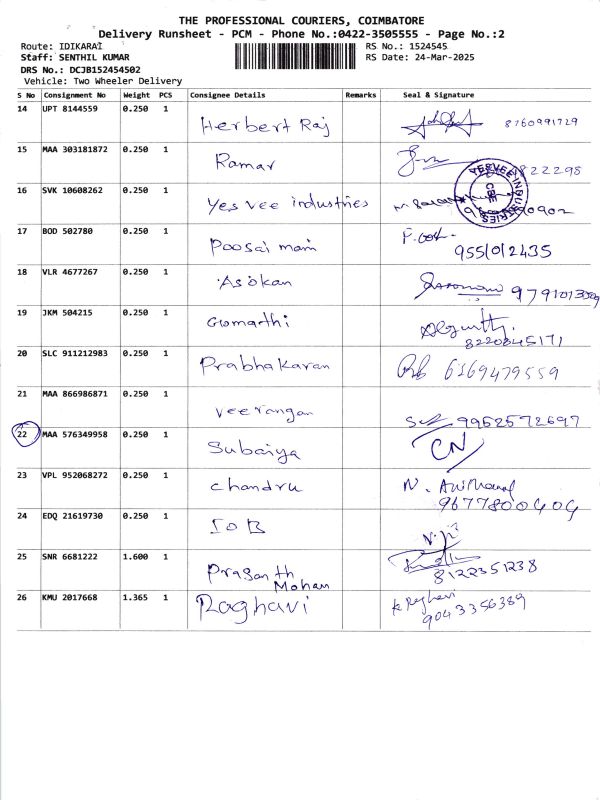 THE PROFESSIONAL COURIERS, COIMBATORE
Delivery Runsheet - PCM - Phone No.:0422-3505555 - Page No.:2
Route: IDIKARAI RS No.: 1524545
Staff: SENTHIL KUMAR RS Date: 24-Mar-2025
DRS No.: DCJB152454502
Vehicle: Two Wheeler Delivery
S No Consignment No Weight PCS Consignee Details Remarks Seal & Signature
14 UPT 8144559 0.250 1
Herbert Raj 8760991729
15 MAA 303181872 0.250 1
Ramar 822298
16 SVK 10608262 0.250 1
Yes vee industries
YESVEE INDUSTRIES
CBE
17 BOD 502780 0.250 1
Poosai mani 9551012435
18 VLR 4677267 0.250 1
Asokan
19 JKM 504215 0.250 1
Gomathi
8220845171
20 SLC 911212983 0.250 1
Prabhakaran 6369479559
21 MAA 866986871 0.250 1
Veerangan 9952572697
22 MAA 576349958 0.250 1
Subaiya CN
23 VPL 952068272 0.250 1
Chandru N.
9677800404
24 EDQ 21619730 0.250 1
IOB
25 SNR 6681222 1.600 1
Prasanth
Mohan 8122351238
26 KMU 2017668 1.365 1
Raghavi K Raghavi
9043356389